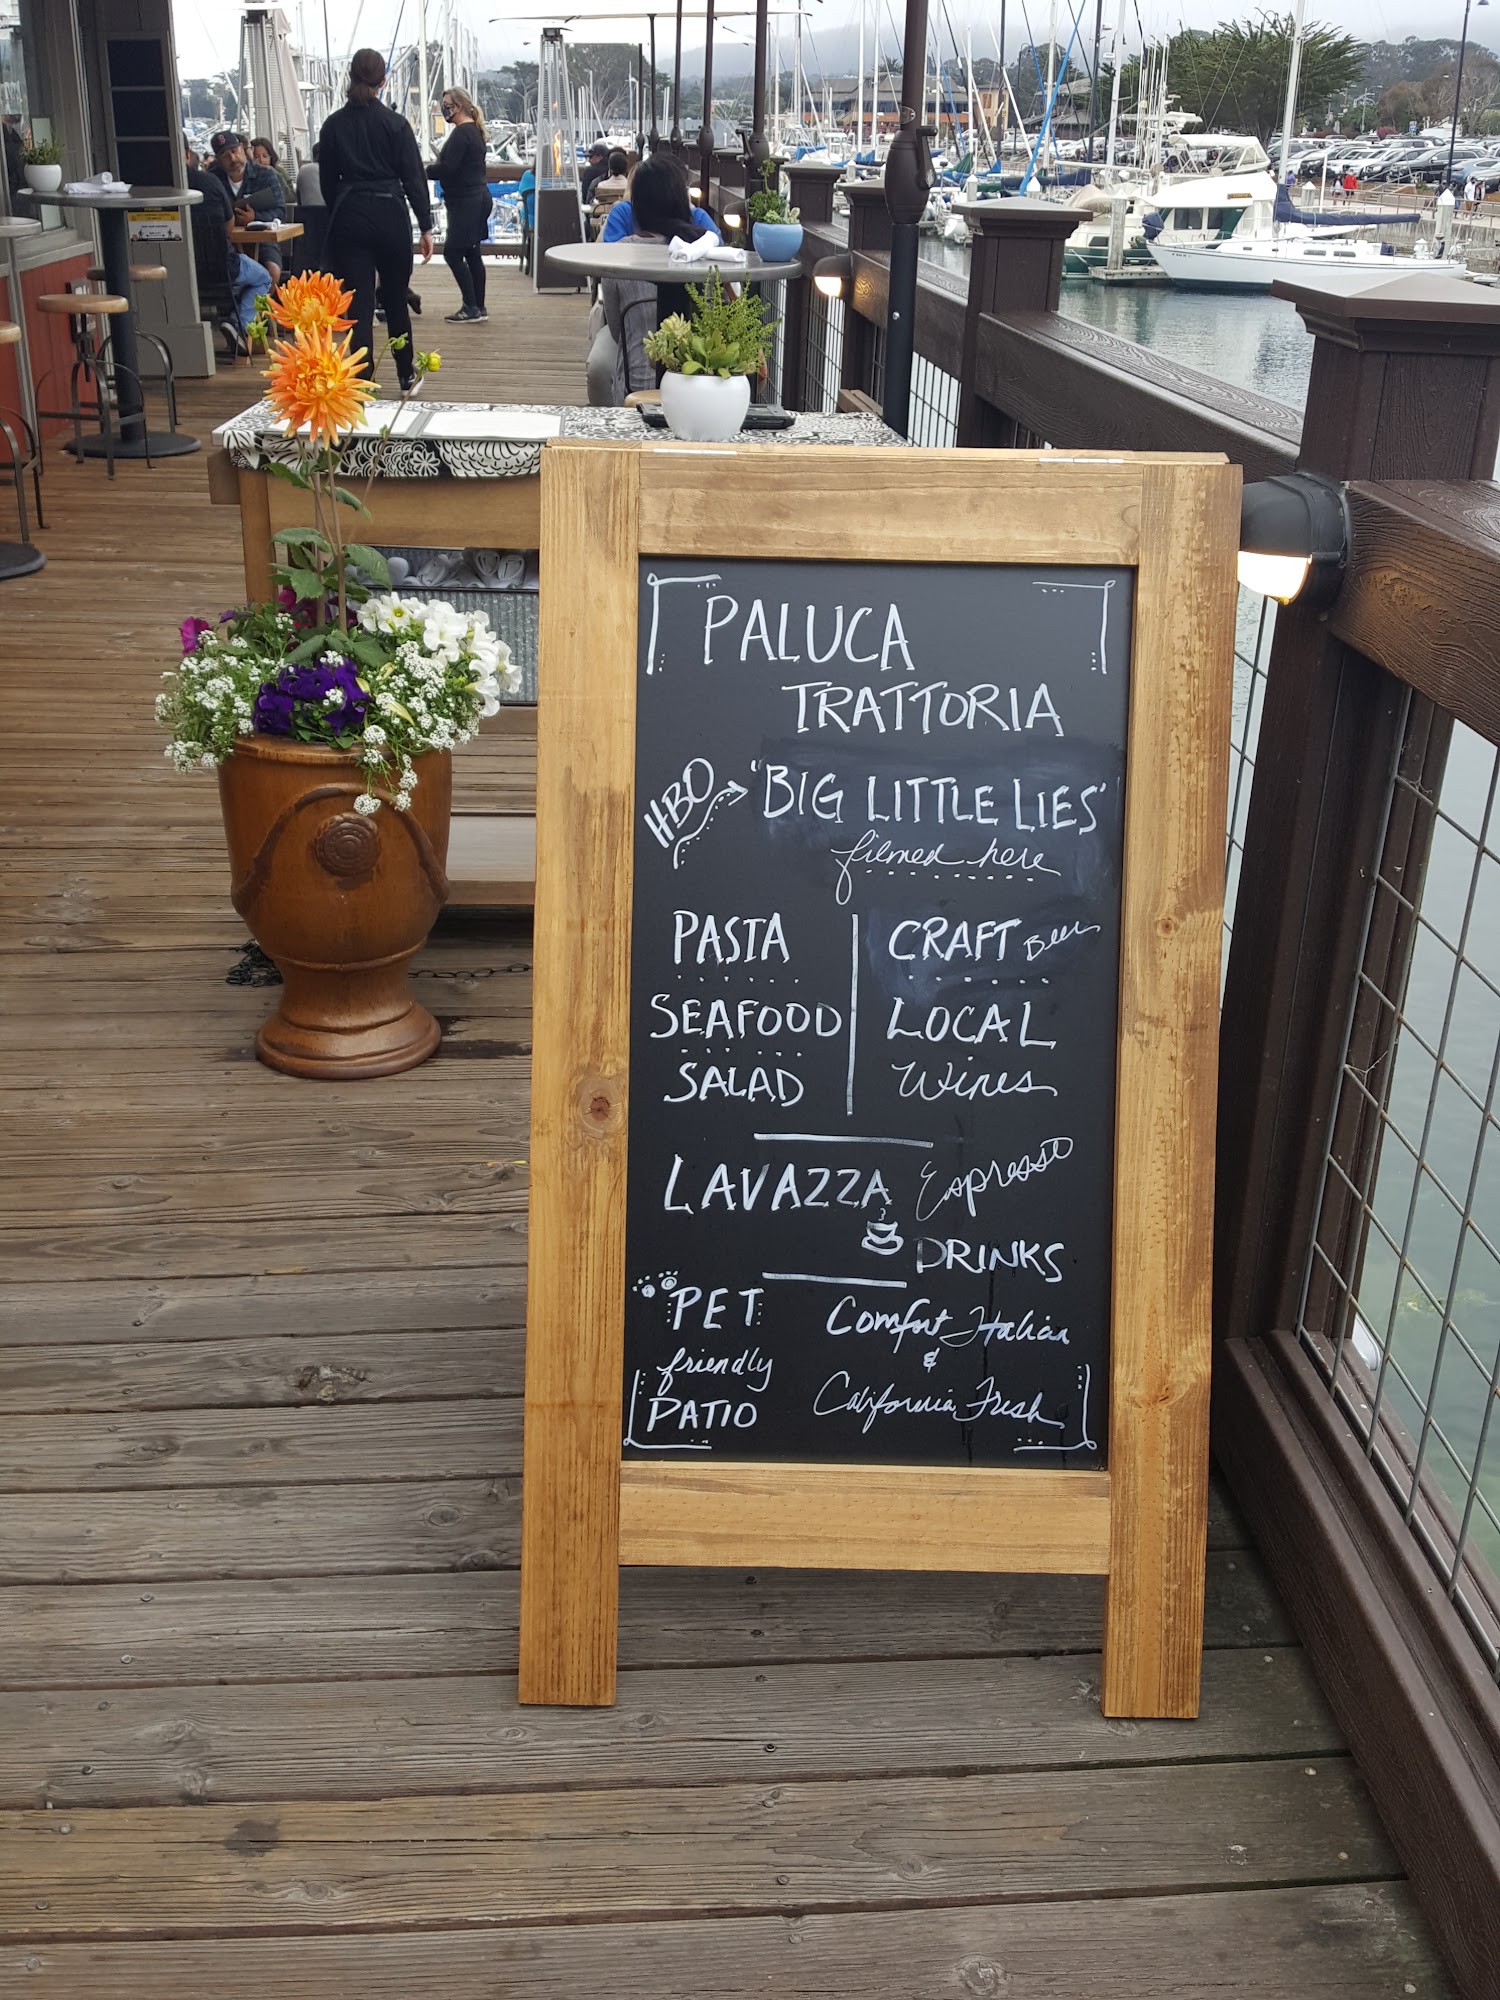 PALUCA
TRATTORIA
HBO → "BIG LITTLE LIES"
filmed here
PASTA
SEAFOOD
SALAD
CRAFT Beer
LOCAL
Wines
LAVAZZA Espresso
DRINKS
PET
friendly
PATIO
Comfort Italian
&
California Fresh